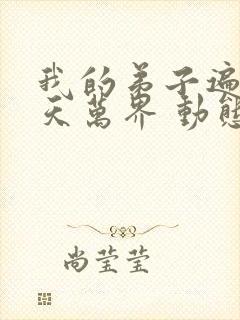 我的弟子遍
天萬界 動態
尚莹莹